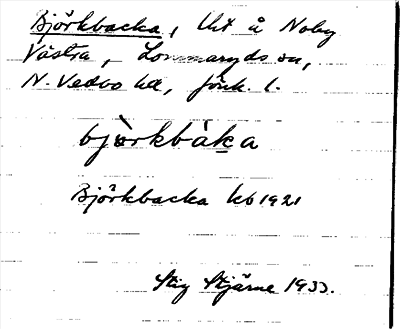 Björkbacka, lht å Noby
Västra, Lommaryds sn,
N. Vedbo hd, Jönk. l.
bjö̀rkbàka
Björkbacka kb 1921
Stig Stjärne 1933.